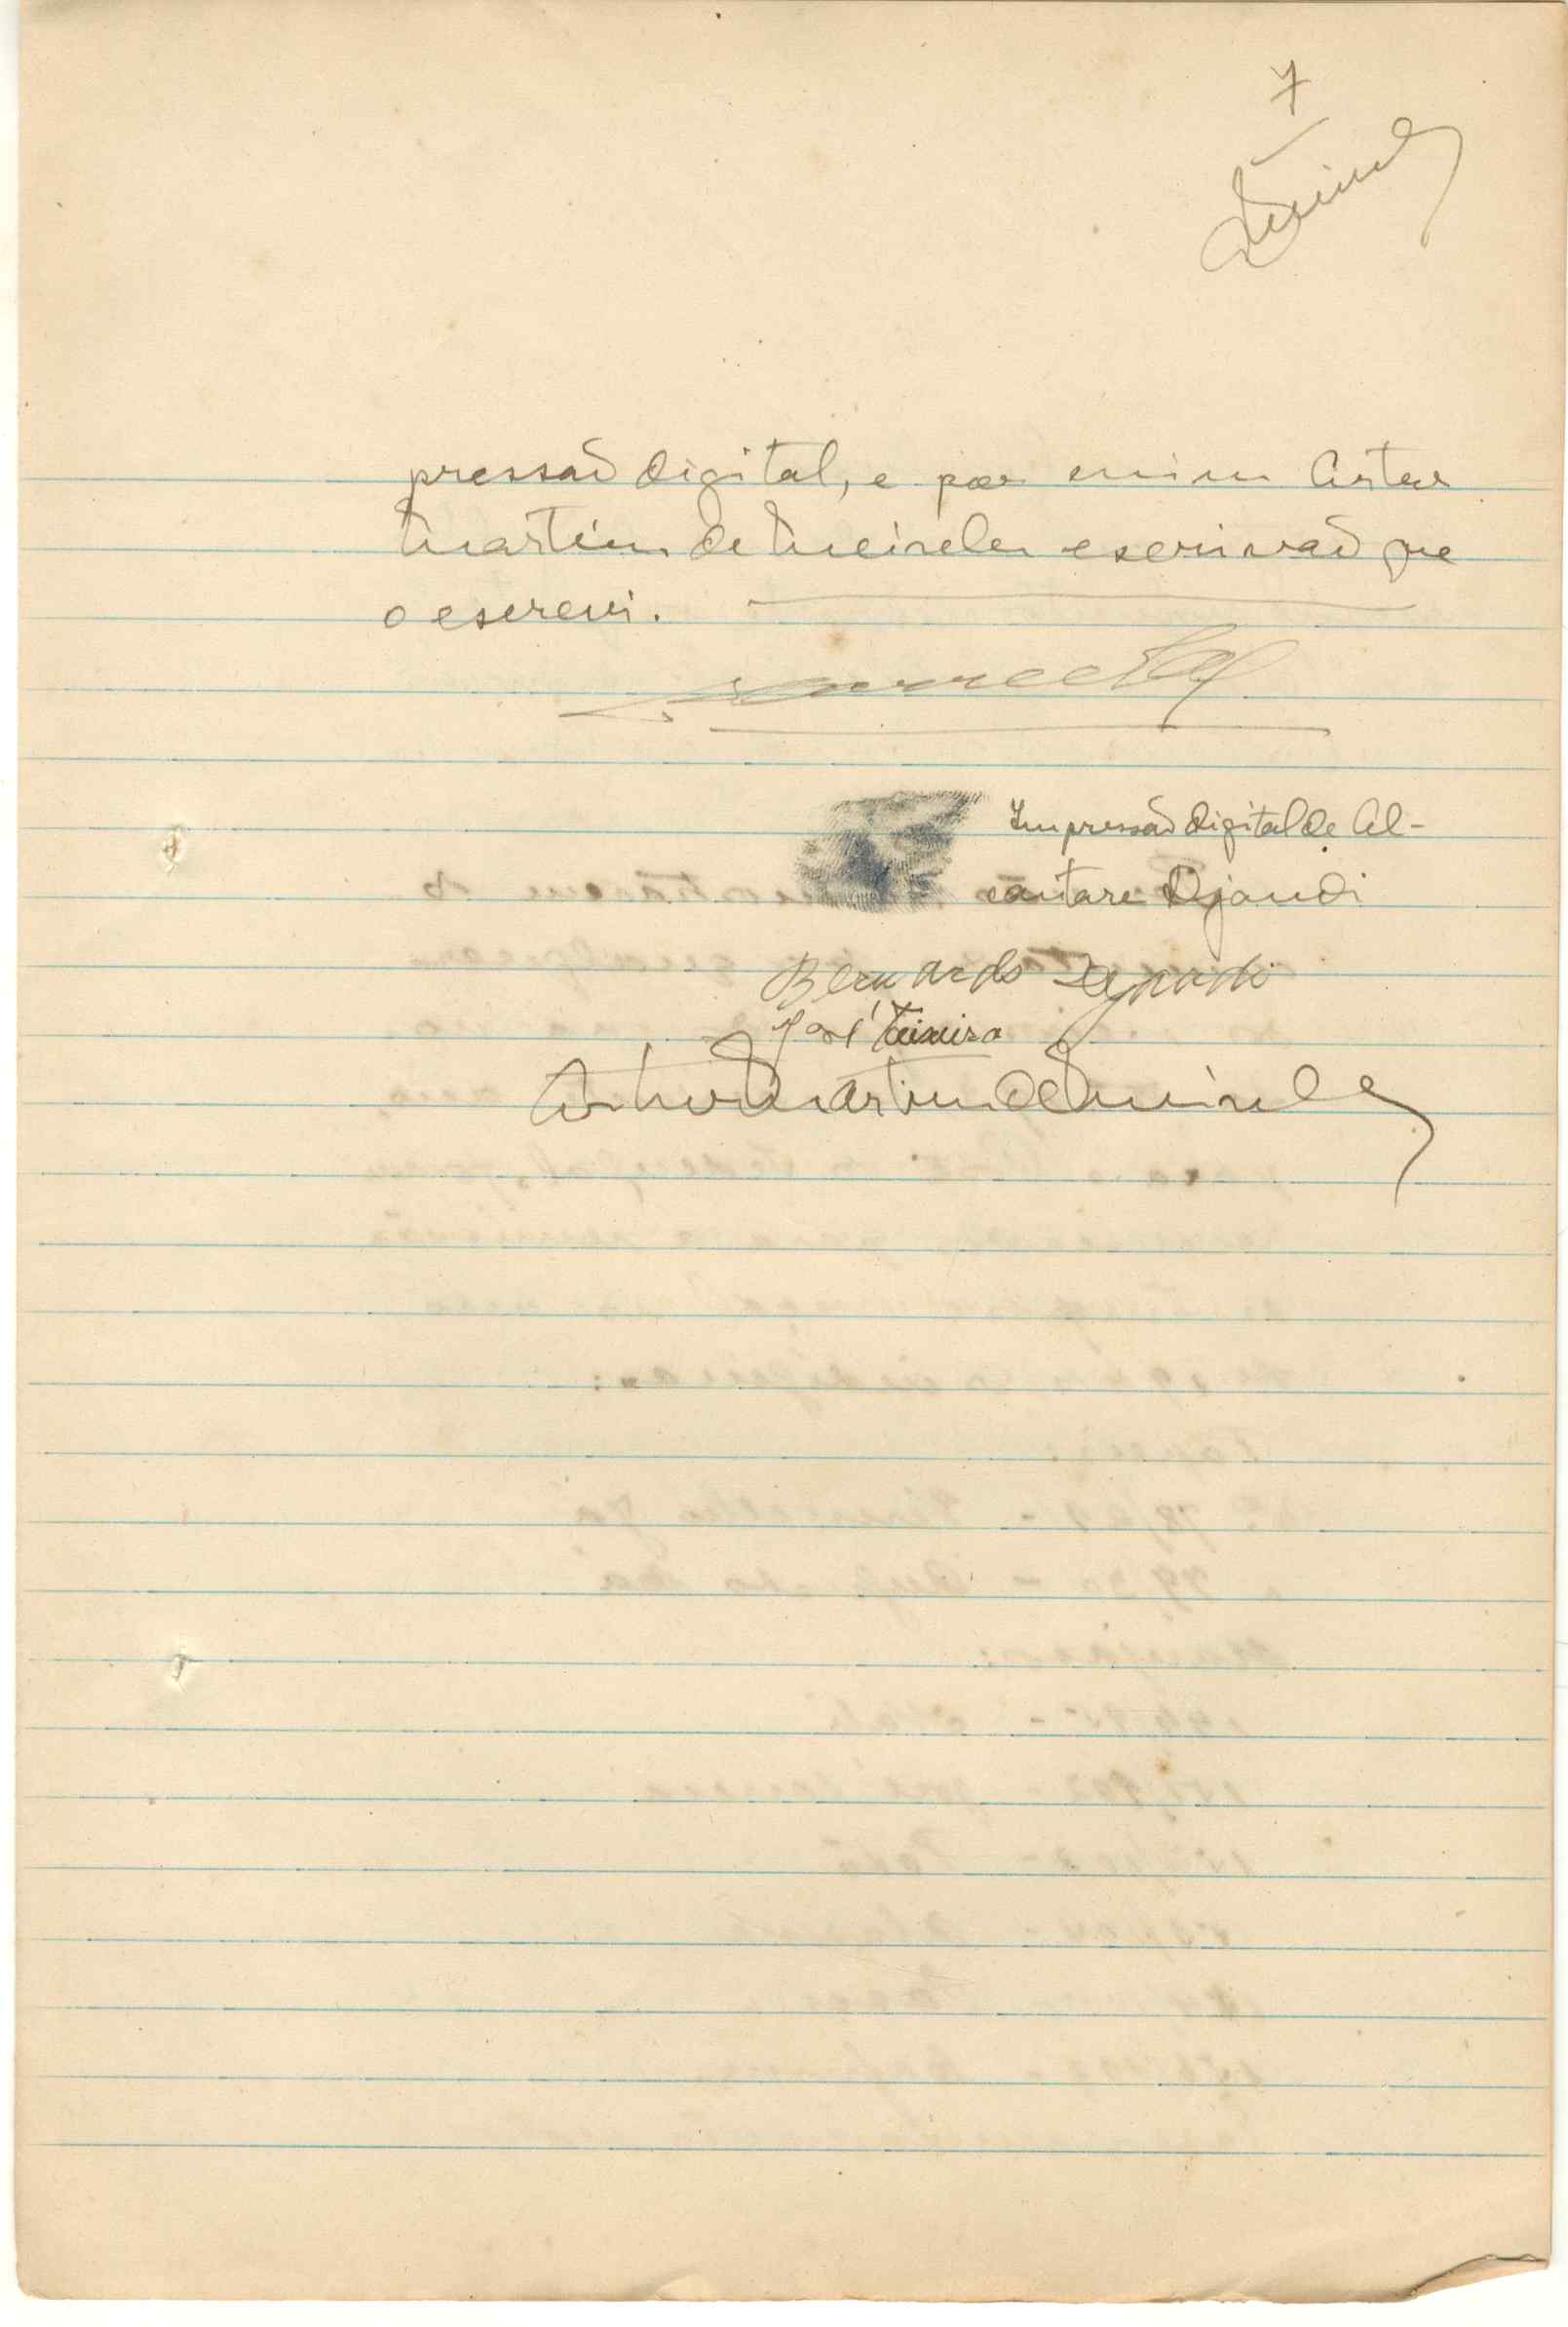 7
Meireles
pressão digital, e por mim Artur
Martins de Meireles escrivão que
o escrevi.
Impressão digital de Al-
cantare Djandi
Bernardo Djandi
José Teixeira
Artur Martins de Meireles